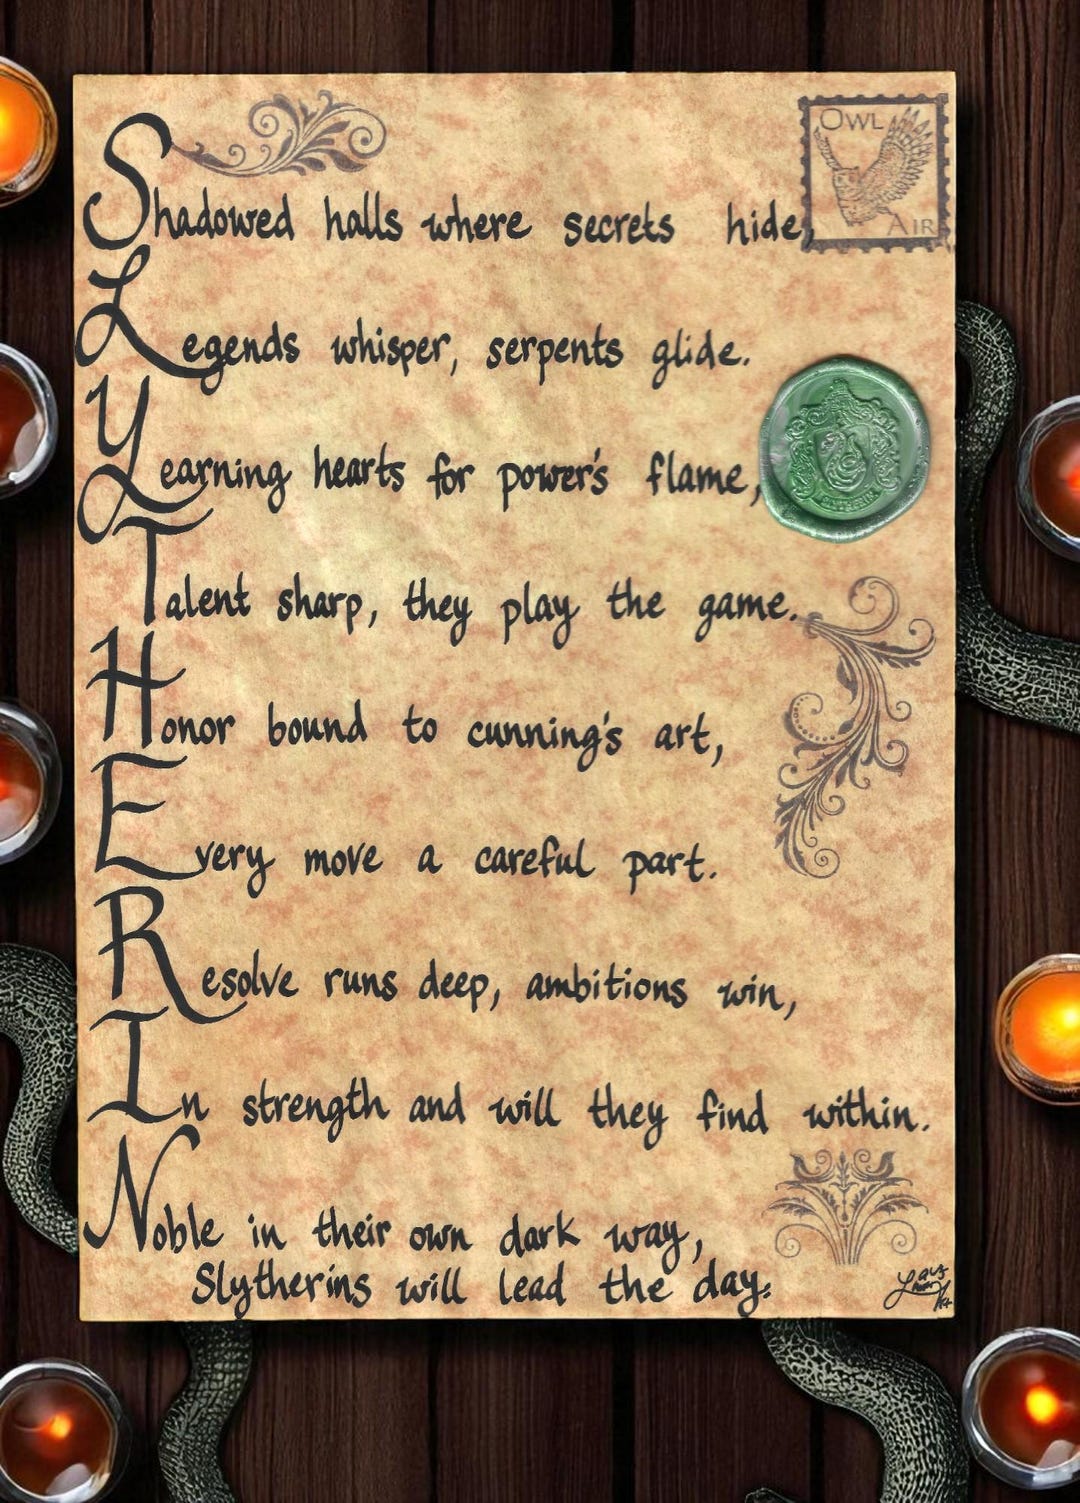 OWL
AIR
Shadowed halls where secrets hide,
Legends whisper, serpents glide.
Yearning hearts for power's flame,
Talent sharp, they play the game.
Honor bound to cunning's art,
Every move a careful part.
Resolve runs deep, ambitions win,
In strength and will they find within.
Noble in their own dark way,
Slytherins will lead the day.